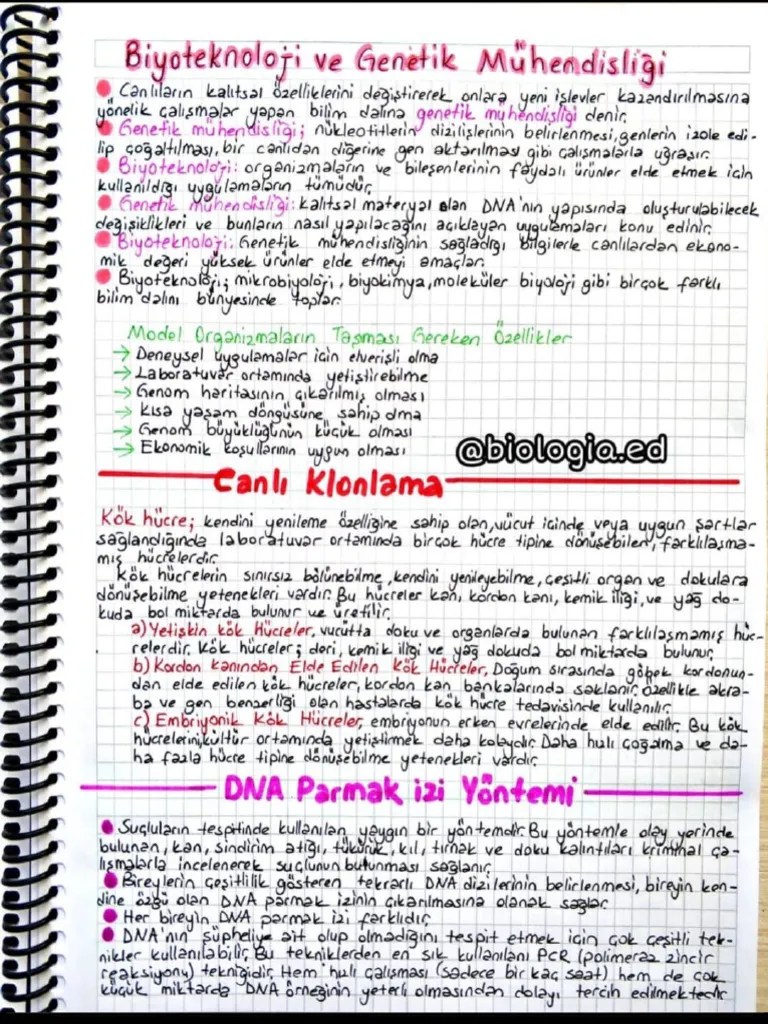 Biyoteknoloji ve Genetik Mühendisliği
Canlıların kalıtsal özelliklerini değiştirerek onlara yeni işlevler kazandırılmasına
yönelik çalışmalar yapan bilim dalına genetik mühendisliği denir.
Genetik mühendisliği; nükleotitlerin dizilişlerinin belirlenmesi, genlerin izole edi-
lip çoğaltılması, bir canlıdan diğerine gen aktarılması gibi çalışmalarla uğraşır.
Biyoteknoloji: organizmaların ve bileşenlerinin faydalı ürünler elde etmek için
kullanıldığı uygulamaların tümüdür.
Genetik mühendisliği: kalıtsal materyal olan DNA'nın yapısında oluşturulabilecek
değişiklikleri ve bunların nasıl yapılacağını açıklayan uygulamaları konu edinir.
Biyoteknoloji: Genetik mühendisliğinin sağladığı bilgilerle canlılardan ekono-
mik değeri yüksek ürünler elde etmeyi amaçlar.
Biyoteknoloji; mikrobiyoloji, biyokimya, moleküler biyoloji gibi birçok farklı
bilim dalını bünyesinde toplar.
Model Organizmaların Taşması Gereken Özellikler
→ Deneysel uygulamalar için elverişli olma
→ Laboratuvar ortamında yetiştirebilme
→ Genom haritasının çıkarılmış olması
→ Kısa yaşam döngüsüne sahip olma
→ Genom büyüklüğünün küçük olması
→ Ekonomik koşullarının uygun olması
@biologia.ed
Canlı Klonlama
Kök hücre; kendini yenileme özelliğine sahip olan, vücut içinde veya uygun şartlar
sağlandığında laboratuvar ortamında birçok hücre tipine dönüşebilen, farklılaşma-
mış hücrelerdir.
Kök hücrelerin sınırsız bölünebilme, kendini yenileyebilme, çeşitli organ ve dokulara
dönüşebilme yetenekleri vardır. Bu hücreler kan, kordon kanı, kemik iliği, ve yağ do-
kuda bol miktarda bulunur ve üretilir.
a) Yetişkin kök Hücreler, vücutta doku ve organlarda bulunan farklılaşmamış hüc-
relerdir. Kök hücreler; deri, kemik iliği ve yağ dokuda bol miktarda bulunur.
b) Kordon kanından Elde Edilen Kök Hücreler, Doğum sırasında göbek kordonun-
dan elde edilen kök hücreler, kordon kan bankalarında saklanır. özellikle akra-
ba ve gen benzerliği olan hastalarda kök hücre tedavisinde kullanılır.
c) Embriyonik Kök Hücreler, embriyonun erken evrelerinde elde edilir. Bu kök
hücrelerini, kültür ortamında yetiştirmek daha kolaydır. Daha hızlı çoğalma ve da-
ha fazla hücre tipine dönüşebilme yetenekleri vardır.
DNA Parmak izi Yöntemi
Suçluların tespitinde kullanılan yaygın bir yöntemdir. Bu yöntemle olay yerinde
bulunan, kan, sindirim atığı, tükürük, kıl, tırnak ve doku kalıntıları kriminal ça-
lışmalarla incelenerek suçlunun bulunması sağlanır.
Bireylerin çeşitlilik gösteren tekrarlı DNA dizilerinin belirlenmesi, bireyin ken-
dine özgü olan DNA parmak izinin çıkarılmasına olanak sağlar.
Her bireyin DNA parmak izi farklıdır.
DNA'nın şüpheliye ait olup olmadığını tespit etmek için çok çeşitli tek-
nikler kullanılabilir. Bu tekniklerden en sık kullanılanı PCR (polimeraz zincir
reaksiyonu) tekniğidir. Hem hızlı çalışması (sadece bir kaç saat) hem de çok
küçük miktarda DNA örneğinin yeterli olmasından dolayı tercih edilmektedir.